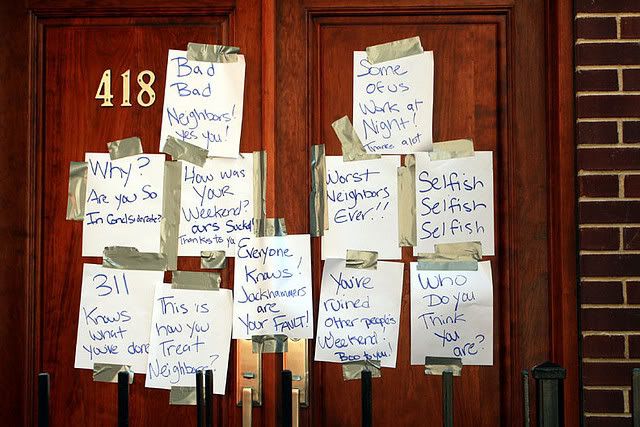 418
Bad
Bad
Neighbors!
Yes you!
Some
of us
Work at
Night!
Thanks a lot
Why?
Are you So
In Considerate?
How was
Your
Weekend?
ours Sucked!
Thanks to you
Worst
Neighbors
Ever!!!
Selfish
Selfish
Selfish
Everyone
Knows!
Jackhammers
are
Your FAULT!
311
Knows
what
you've done
This is
how you
Treat
Neighbors?
You've
ruined
other people's
Weekend!
Boo to you!
Who
Do you
Think
You
are?